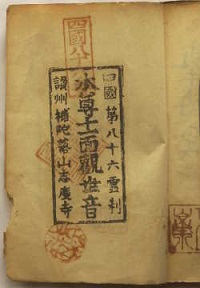 四國八十
四國第八十六霊刹
本尊十一面觀世音
讃州補陀落山志度寺